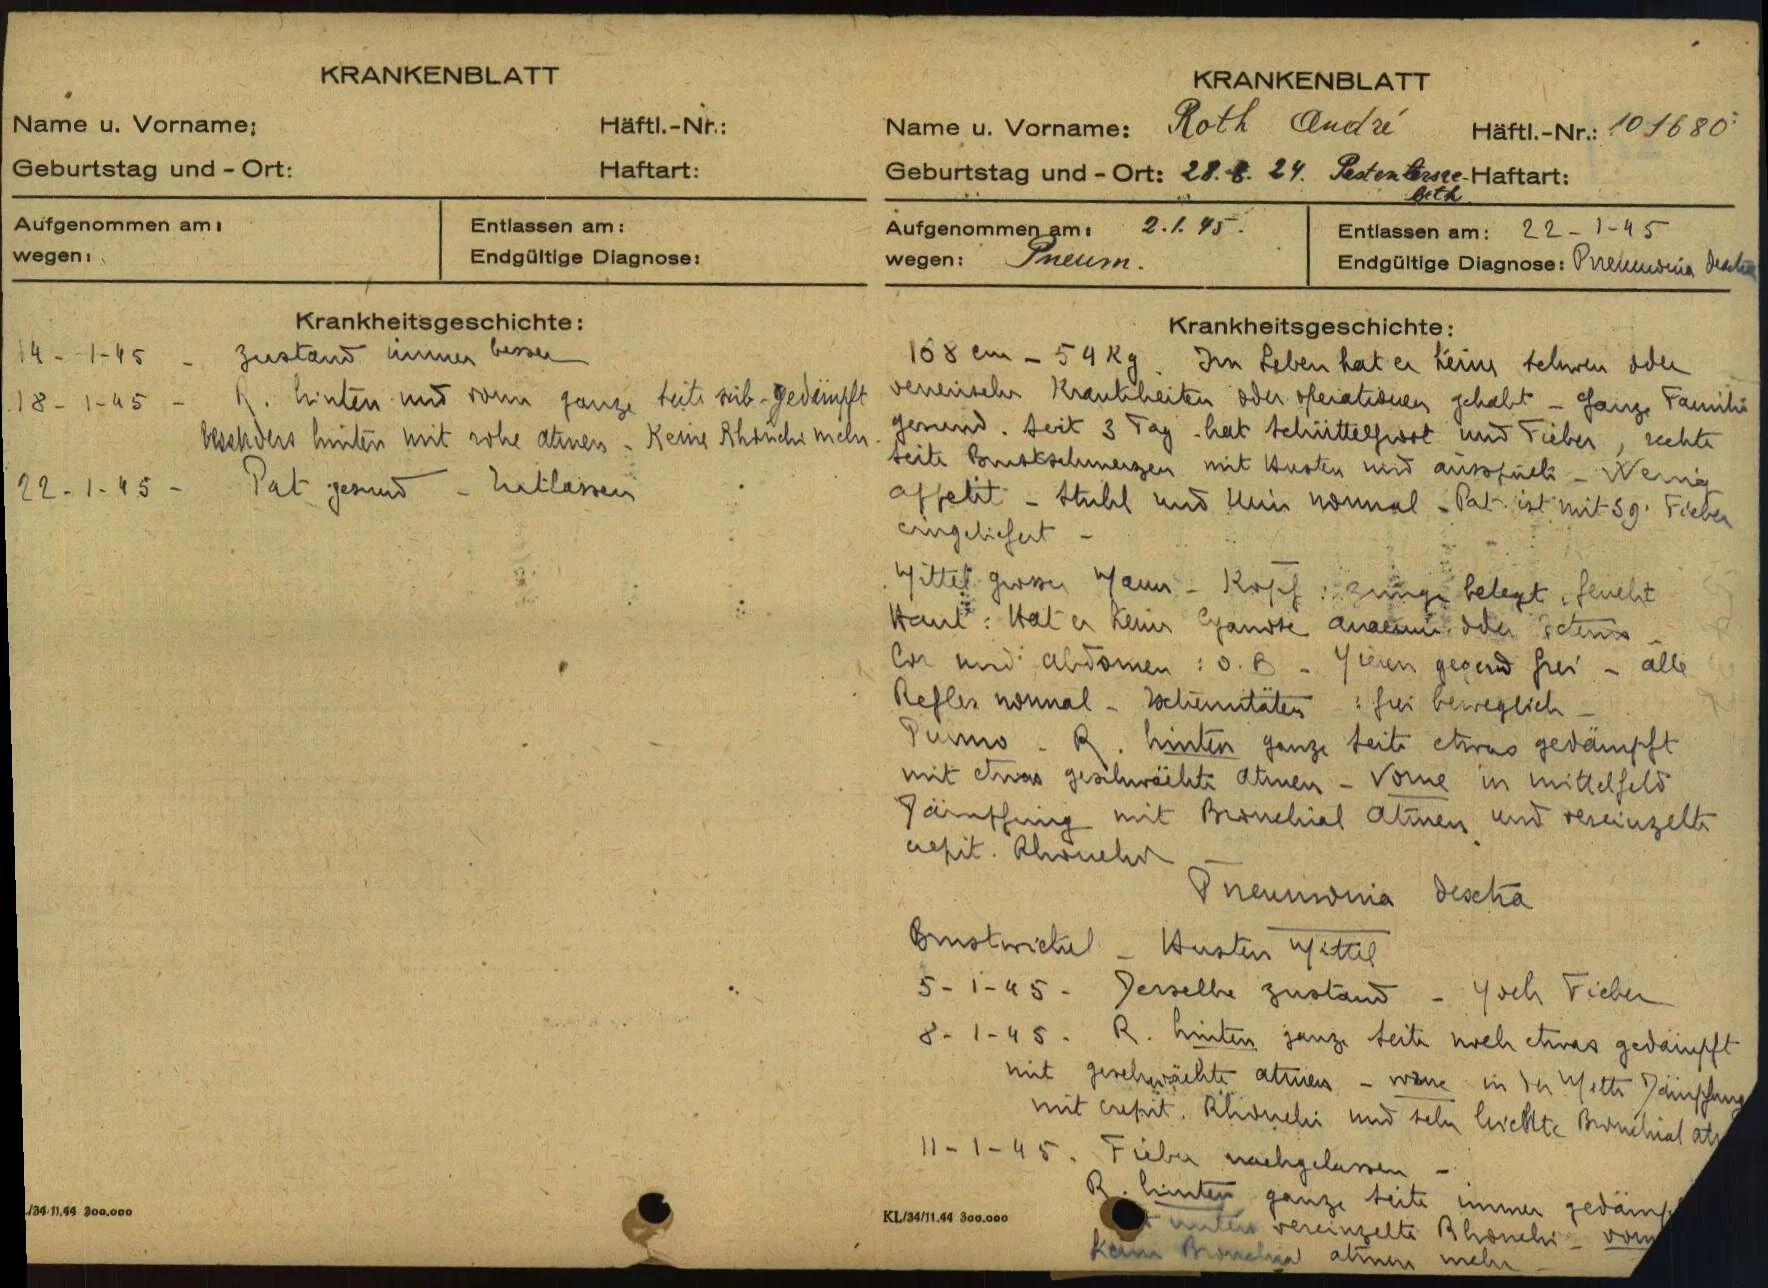 KRANKENBLATT
Name u. Vorname:
Häftl.-Nr.:
Geburtstag und - Ort:
Haftart:
Aufgenommen am:
wegen:
Entlassen am:
Endgültige Diagnose:
Krankheitsgeschichte:
14 - 1-45 - Zustand immer besser
18 - 1-45 - R. hinten und vorn ganze seite sub-gedämpft
besonders hinten mit rohe atmen - Keine Rhonchi mehr.
22 - 1-45 - Pat gesund - Entlassen
/34 11.44 300.000
KRANKENBLATT
Name u. Vorname: Roth André
Häftl.-Nr.: 101680
Geburtstag und - Ort: 28. 8. 24. Pestenzerse-
beth
Haftart:
Aufgenommen am: 2.1.45.
wegen: Pneum.
Entlassen am: 22-1-45
Endgültige Diagnose: Pneumonia dextra
Krankheitsgeschichte:
168 cm - 54 Kg. Im Leben hat er keine schwere oder
venerische Krankheiten oder operationen gehabt - ganze Familie
gesund. Seit 3 Tag hat schüttelfrost und Fieber, rechte
seite Brustschmerzen mit Husten und - Wenig
appetit - Stuhl und Urin normal - Pat. ist mit 39° Fieber
eingeliefert -
Mittel grosser Mann - Kopf: zunge belegt, feucht
Haut: Hat er keine Cyanose anaemie oder Icterus -
Cor und abdomen: o.B - Nieren gegend frei - alle
Reflex normal - Extremitäten: frei beweglich -
Pulmo - R. hinten ganze seite etwas gedämpft
mit etwas geschwächte atmen - Vorne in mittelfeld
Dämpfung mit Bronchial atmen und vereinzelte
crepit. Rhonchi -
Pneumonia dextra
Brustwickel - Husten Mittel
5-1-45 - Derselbe zustand - Noch Fieber
8-1-45. R. hinten ganze seite noch etwas gedämpft
mit geschwächte atmen - vorne in der Mitte Dämpfung
mit crepit. Rhonchi und sehr leichte Bronchial at
11-1-45. Fieber nachgelassen -
R. hinten ganze seite immer gedämpf
unten vereinzelte Rhonchi - vorn
Kein Bronchial atmen mehr -
KL/34/11.44 300.000